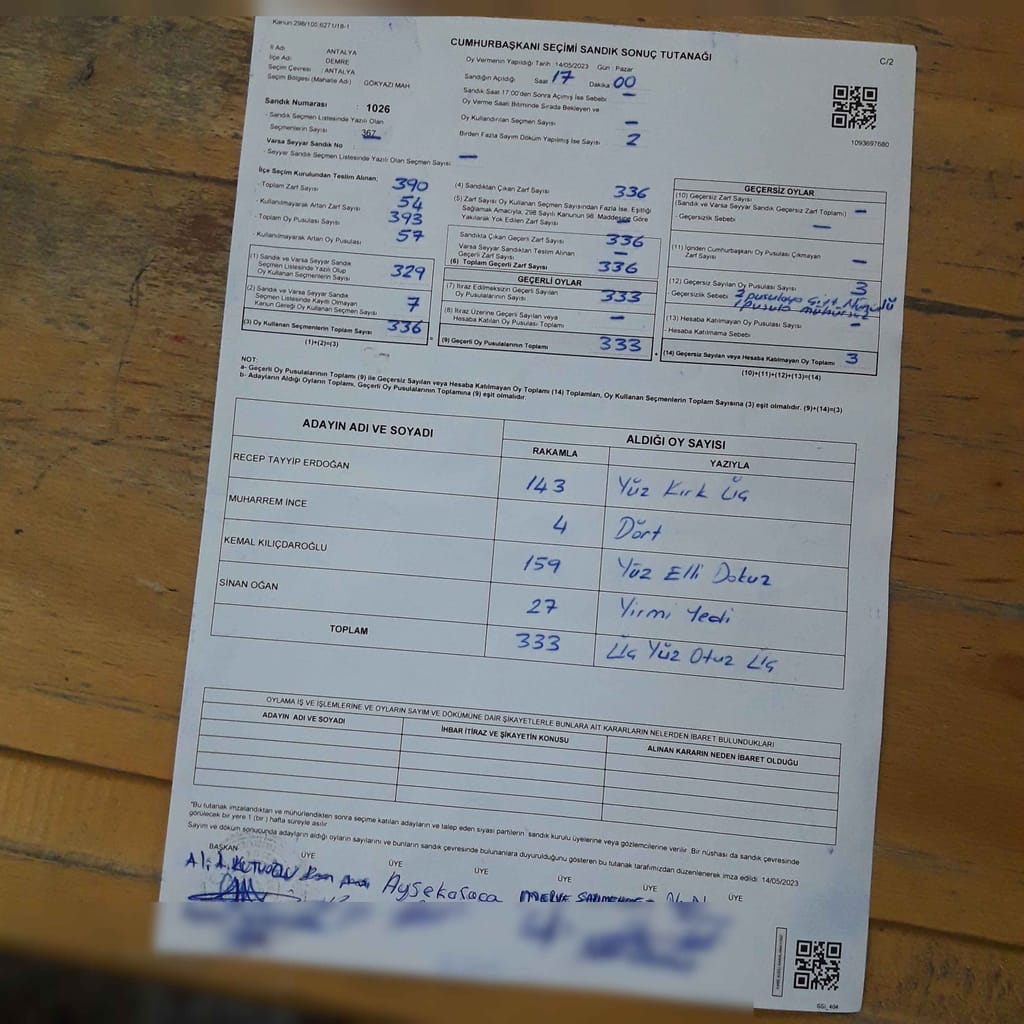 Kanun 298/105:6271/18-1
CUMHURBAŞKANI SEÇİMİ SANDIK SONUÇ TUTANAĞI
C/2
İl Adı : ANTALYA
İlçe Adı : DEMRE
Seçim Çevresi : ANTALYA
Seçim Bölgesi (Mahalle Adı) : GÖKYAZI MAH
Sandık Numarası : 1026
- Sandık Seçmen Listesinde Yazılı Olan
Seçmenlerin Sayısı 367
Varsa Seyyar Sandık No
- Seyyar Sandık Seçmen Listesinde Yazılı Olan Seçmen Sayısı —
Oy Vermenin Yapıldığı Tarih : 14/05/2023 Gün : Pazar
Sandığın Açıldığı Saat 17 Dakika 00
Sandık Saat 17:00'den Sonra Açılmış İse Sebebi —
Oy Verme Saati Bitiminde Sırada Bekleyen ve
Oy Kullandırılan Seçmen Sayısı —
Birden Fazla Sayım Döküm Yapılmış İse Sayısı 2
1093697680
İlçe Seçim Kurulundan Teslim Alınan;
- Toplam Zarf Sayısı 390
- Kullanılmayarak Artan Zarf Sayısı 54
- Toplam Oy Pusulası Sayısı 393
- Kullanılmayarak Artan Oy Pusulası 57
(1) Sandık ve Varsa Seyyar Sandık
Seçmen Listesinde Yazılı Olup
Oy Kullanan Seçmenlerin Sayısı 329
(2) Sandık ve Varsa Seyyar Sandık
Seçmen Listesinde Kayıtlı Olmayan
Kanun Gereği Oy Kullanan Seçmen Sayısı 7
(3) Oy Kullanan Seçmenlerin Toplam Sayısı 336
(1)+(2)=(3)
(4) Sandıktan Çıkan Zarf Sayısı 336
(5) Zarf Sayısı Oy Kullanan Seçmen Sayısından Fazla İse, Eşitliği
Sağlamak Amacıyla, 298 Sayılı Kanunun 98. Maddesine Göre
Yakılarak Yok Edilen Zarf Sayısı —
Sandıkta Çıkan Geçerli Zarf Sayısı 336
Varsa Seyyar Sandıktan Teslim Alınan
Geçerli Zarf Sayısı —
(6) Toplam Geçerli Zarf Sayısı 336
GEÇERLİ OYLAR
(7) İtiraz Edilmeksizin Geçerli Sayılan
Oy Pusulalarının Sayısı 333
(8) İtiraz Üzerine Geçerli Sayılan veya
Hesaba Katılan Oy Pusulası Toplamı —
(9) Geçerli Oy Pusulalarının Toplamı 333
GEÇERSİZ OYLAR
(10) Geçersiz Zarf Sayısı
(Sandık ve Varsa Seyyar Sandık Geçersiz Zarf Toplamı) —
- Geçersizlik Sebebi —
(11) İçinden Cumhurbaşkanı Oy Pusulası Çıkmayan
Zarf Sayısı —
(12) Geçersiz Sayılan Oy Pusulası Sayısı 3
Geçersizlik Sebebi 2 pusulaya
1 pusula mühürsüz
(13) Hesaba Katılmayan Oy Pusulası Sayısı —
- Hesaba Katılmama Sebebi
(14) Geçersiz Sayılan veya Hesaba Katılmayan Oy Toplamı 3
(10)+(11)+(12)+(13)=(14)
NOT:
a- Geçerli Oy Pusulalarının Toplamı (9) ile Geçersiz Sayılan veya Hesaba Katılmayan Oy Toplamı (14) Toplamları, Oy Kullanan Seçmenlerin Toplam Sayısına (3) eşit olmalıdır. (9)+(14)=(3)
b- Adayların Aldığı Oyların Toplamı, Geçerli Oy Pusulalarının Toplamına (9) eşit olmalıdır.
ADAYIN ADI VE SOYADI ALDIĞI OY SAYISI
RAKAMLA YAZIYLA
RECEP TAYYİP ERDOĞAN 143 Yüz Kırk Üç
MUHARREM İNCE 4 Dört
KEMAL KILIÇDAROĞLU 159 Yüz Elli Dokuz
SİNAN OĞAN 27 Yirmi Yedi
TOPLAM 333 Üç Yüz Otuz Üç
OYLAMA İŞ VE İŞLEMLERİNE VE OYLARIN SAYIM VE DÖKÜMÜNE DAİR ŞİKAYETLERLE BUNLARA AİT KARARLARIN NELERDEN İBARET BULUNDUKLARI
ADAYIN ADI VE SOYADI İHBAR İTİRAZ VE ŞİKAYETİN KONUSU ALINAN KARARIN NEDEN İBARET OLDUĞU
"Bu tutanak imzalandıktan ve mühürlendikten sonra seçime katılan adayların ve talep eden siyasi partilerin, sandık kurulu üyelerine veya gözlemcilerine verilir. Bir nüshası da sandık çevresinde
görülecek bir yere 1 (bir) hafta süreyle asılır
Sayım ve döküm sonucunda adayların aldığı oyların sayılarını ve bunların sandık çevresinde bulunanlara duyurulduğunu gösteren bu tutanak tarafımızdan düzenlenerek imza edildi. 14/05/2023
BAŞKAN ÜYE ÜYE ÜYE ÜYE ÜYE ÜYE
Ayşe